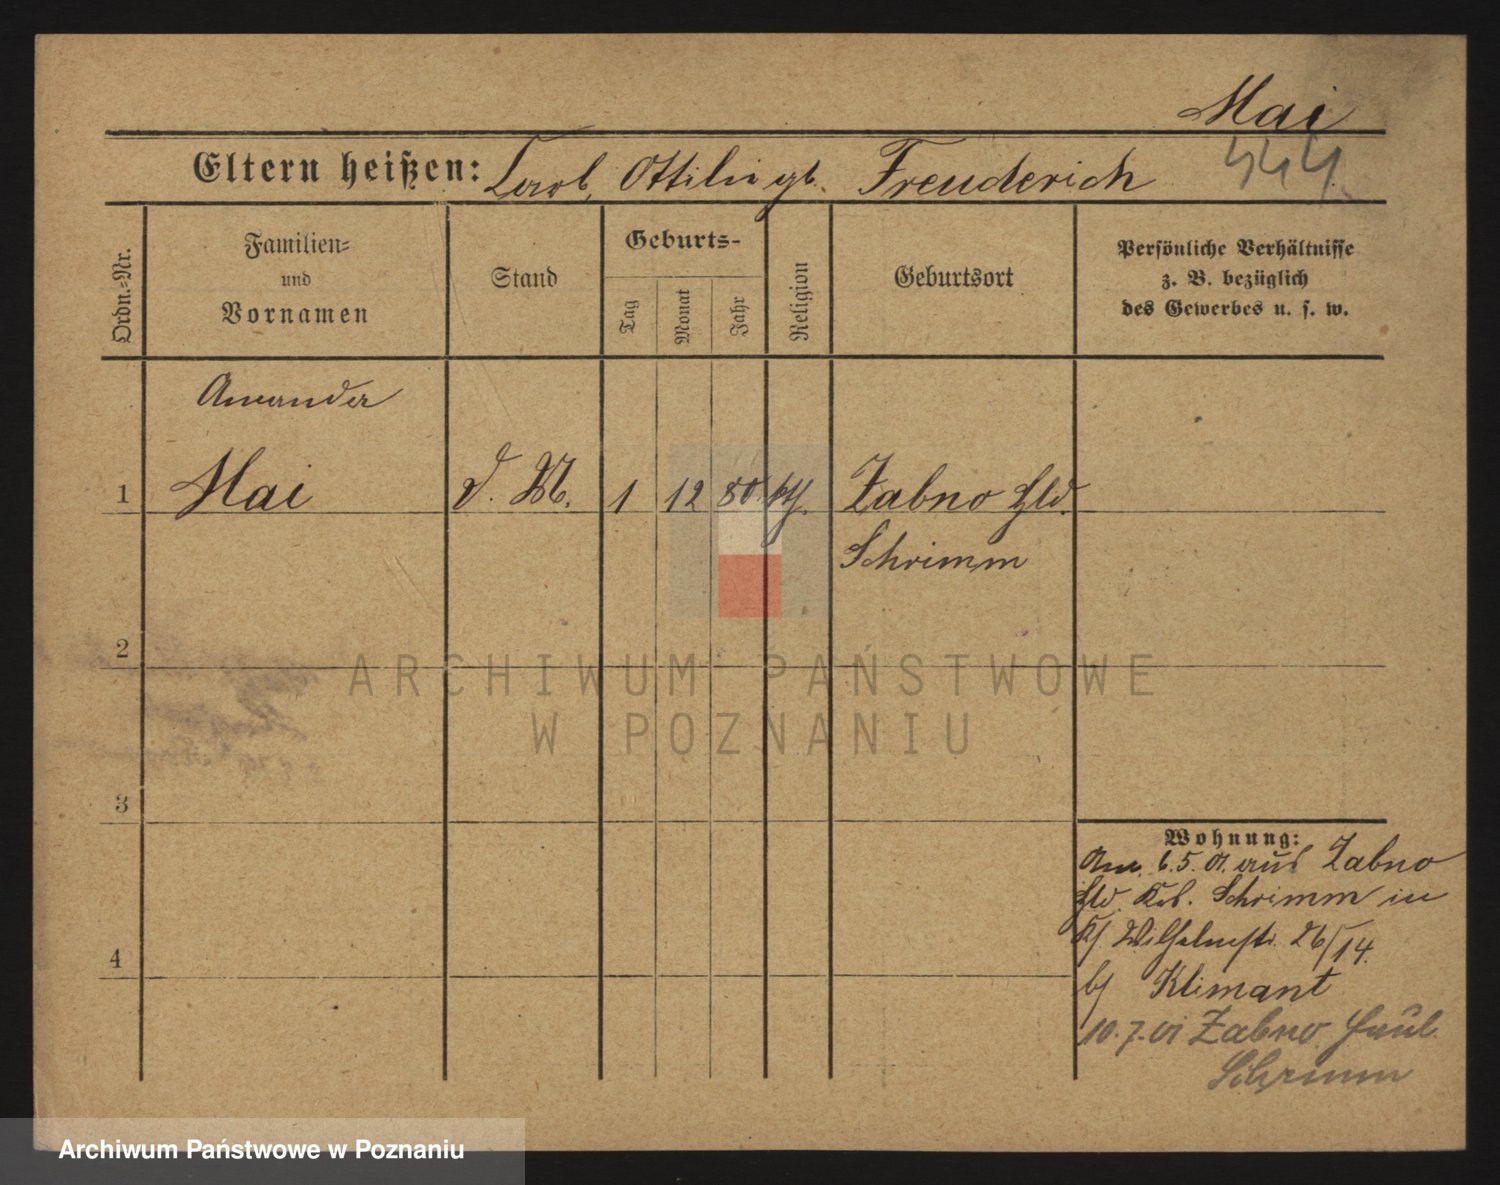 Mai
Eltern heißen: Carl, Ottilie gb. Freuderich
Ordn.-Nr.
Familien-
und
Vornamen
Stand
Geburts-
Tag
Monat
Jahr
Religion
Geburtsort
Persönliche Verhältnisse
z. B. bezüglich
des Gewerbes u. s. w.
Amanda
1 Mai d. M. 1 12 80 Zabno Hld.
Schrimm
2
ARCHIWUM PAŃSTWOWE
W POZNANIU
3
4
Wohnung:
6. 5. 01. aus Zabno
Hld. Schrimm in
Wilhelmstr. 26/14.
bj Klimant
10. 7. 01 Zabno Haul.
Schrimm
Archiwum Państwowe w Poznaniu